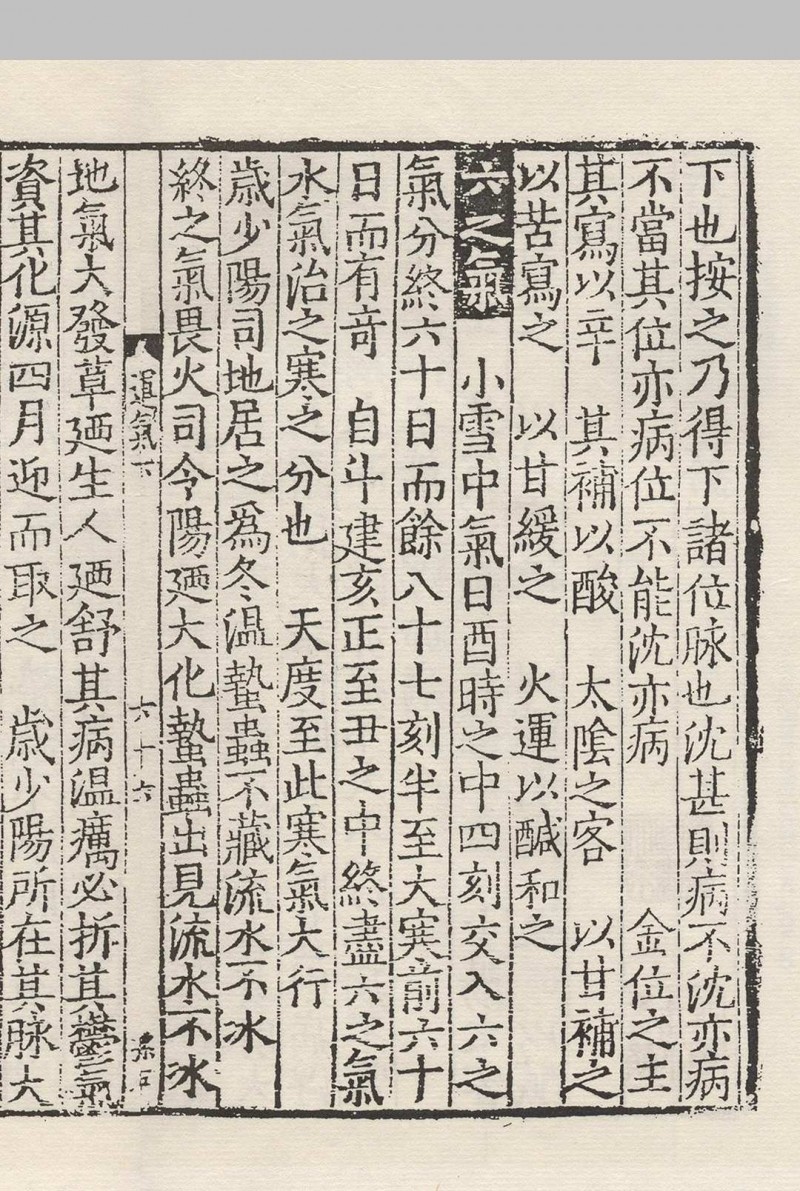 下也按之乃得下諸位脉也沈甚則病不沈亦病
不當其位亦病位不能沈亦病　金位之主
其寫以辛　其補以酸　太陰之客　以甘補之
以苦寫之　以甘緩之　火運以鹹和之
六之氣　小雪中氣日酉時之中四刻交入六之
氣分終六十日而餘八十七刻半至大寒前六十
日而有竒　自斗建亥正至丑之中終盡六之氣
水氣治之寒之分也　天度至此寒氣大行
歳少陽司地居之爲冬温蟄蟲不藏流水不冰
終之氣畏火司令陽廼大化蟄蟲出見流水不冰
運氣下　六十六
地氣大發草廼生人廼舒其病温癘必折其鬱氣
資其化源四月迎而取之　歳少陽所在其脉大